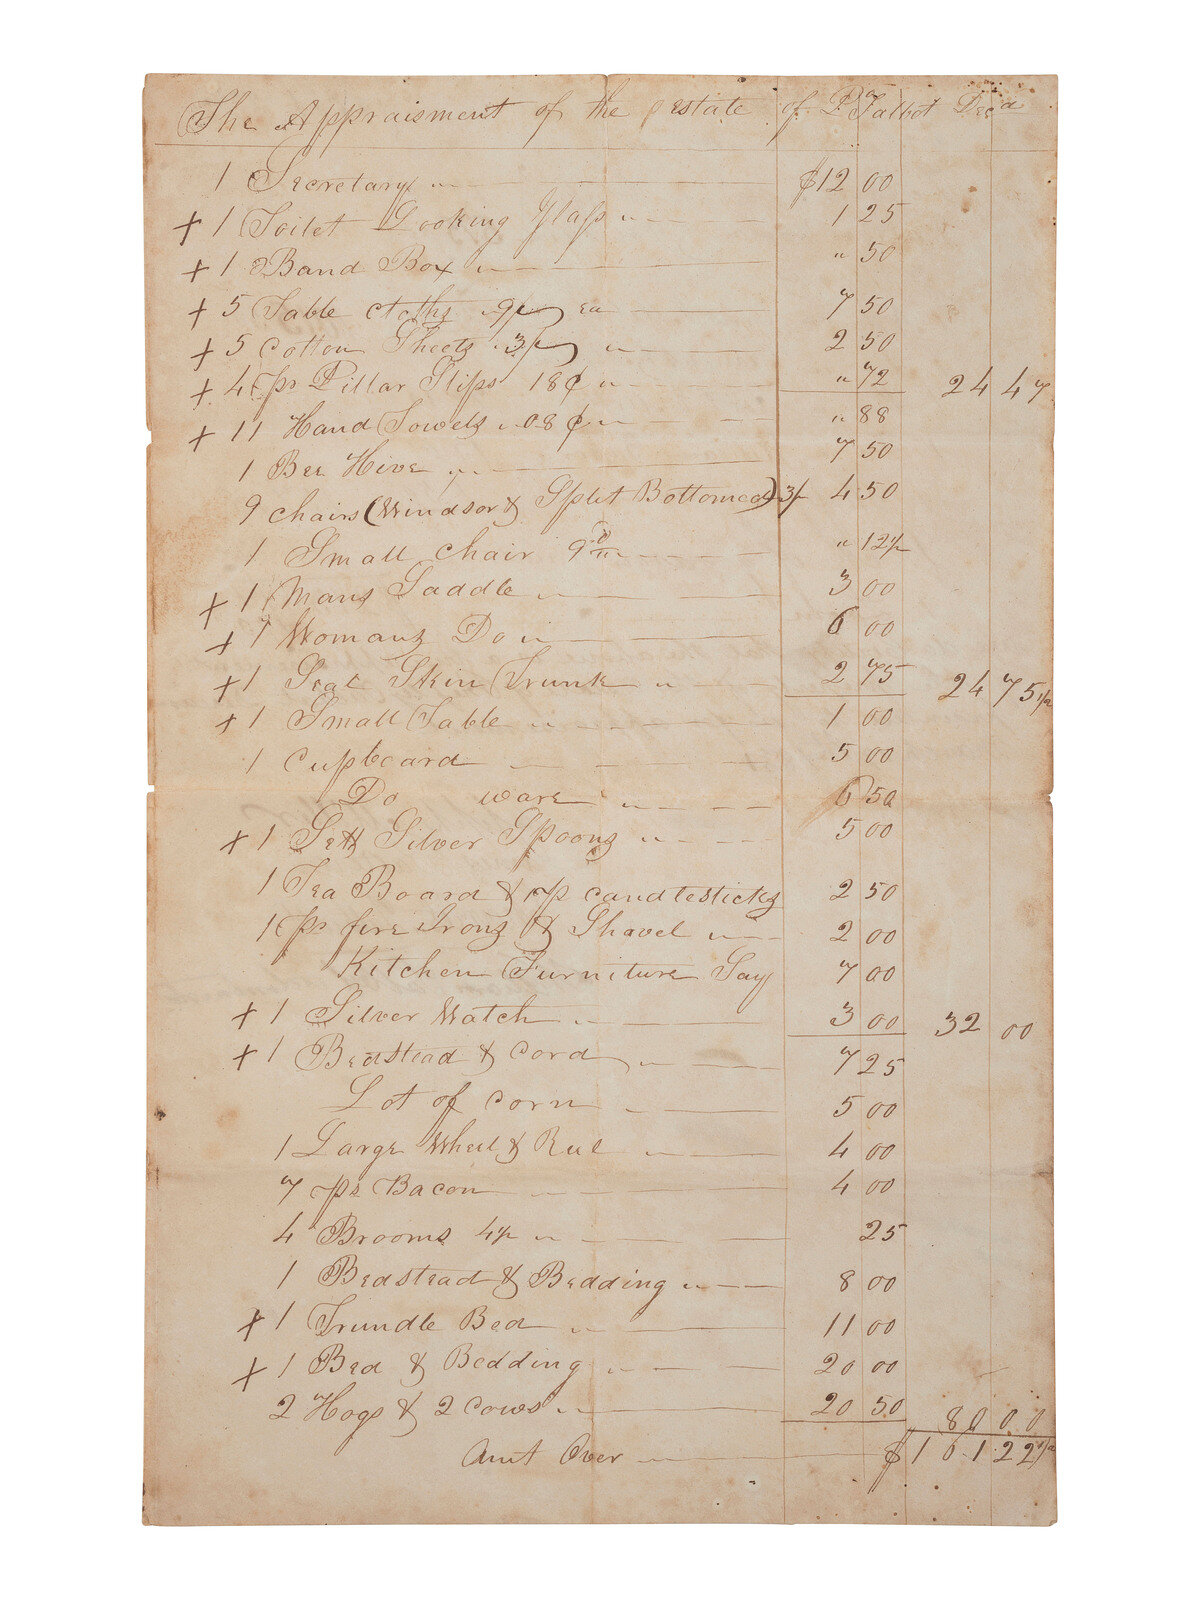 The Appraisment of the Estate of P Talbot Decd
1 Secretary " $12 00
+ 1 Toilet Looking Glass " 1 25
+ 1 Band Box " " 50
+ 5 Table cloths 9/ ea 7 50
+ 5 Cotton Sheets 3/ " 2 50
+ 4 pr Pillar Slips 18¢ " " 72 24 47
+ 11 Hand Towels 08¢ " " 88
1 Bee Hive " 7 50
9 chairs (Windsor & Split Bottomed) 3/ 4 50
1 Small chair 9d " " 12½
+ 1 Mans Saddle " 3 00
+ 1 Womans Do " 6 00
+ 1 Seal Skin Trunk " 2 75 24 75½
+ 1 Small Table " 1 00
1 Cupboard 5 00
Do ware " 6 50
+ 1 Sett Silver Spoons " 5 00
1 Tea Board & 1 p candlesticks 2 50
1 pr fire Irons & Shovel " 2 00
Kitchen Furniture Say 7 00
+ 1 Silver Watch " 3 00 32 00
+ 1 Bedstead & Cord " 7 25
Lot of corn " 5 00
1 Large Wheel & Reel " 4 00
7 ps Bacon " 4 00
4 Brooms 4½ " 25
1 Bedstead & Bedding " 8 00
+ 1 Trundle Bed " 11 00
+ 1 Bed & Bedding " 20 00
2 Hogs & 2 Cows " 20 50 80 00
Amt Over " $161 22½